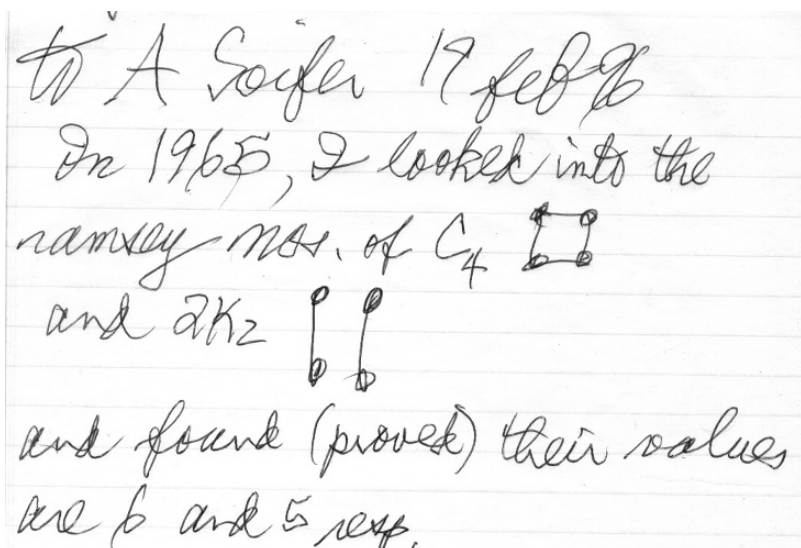 to A Soifer 19 feb 96
In 1965, I looked into the
ramsey nos. of C4
and 2K2
and found (proved) their values
are 6 and 5 resp.